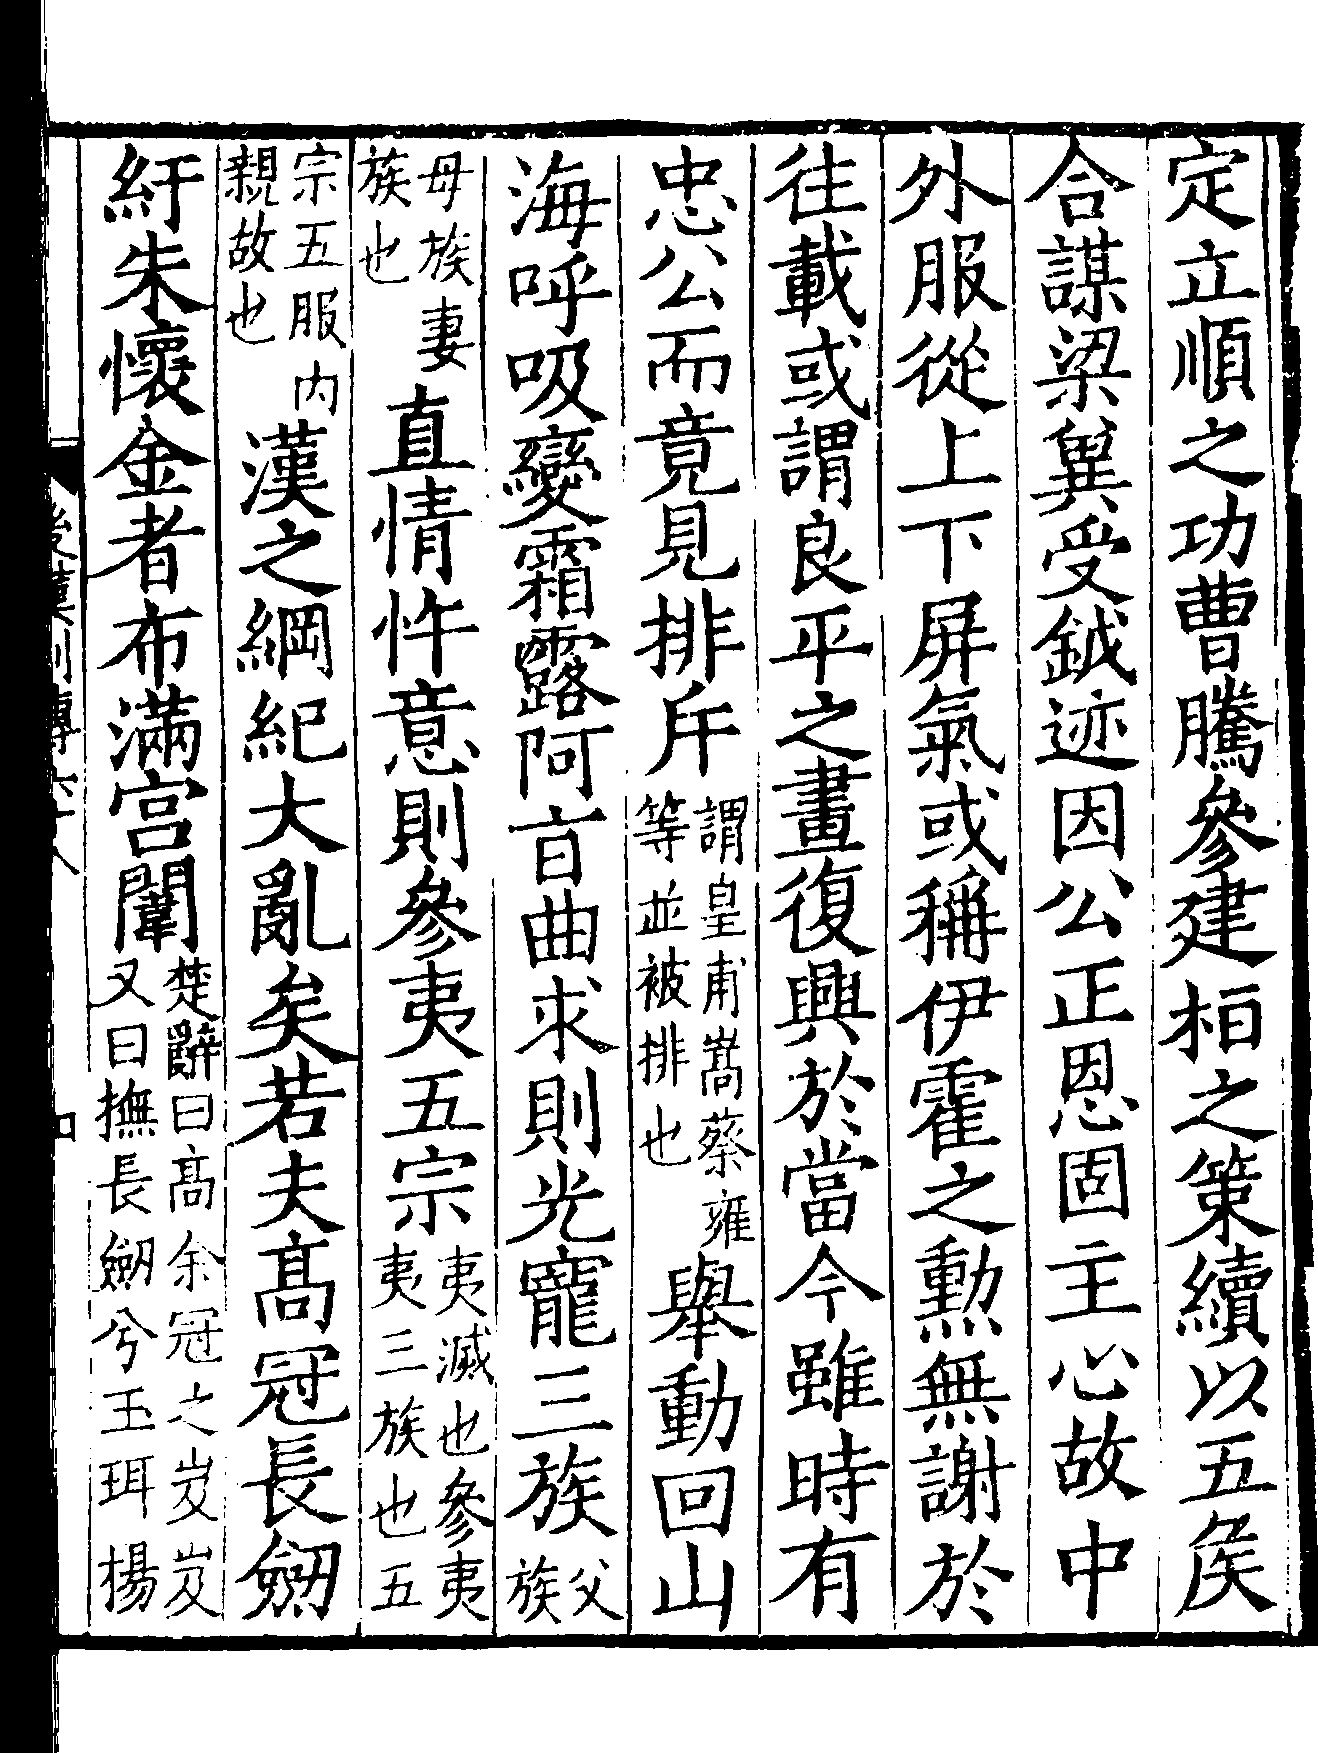 定立順之功曹騰參建栢之策續以五侯
合謀梁冀受鉞迹因公正恩固主心故中
外服從上下屏氣或稱伊霍之勳無謝於
往載或謂良平之畫復興於當今雖時有
忠公而竟見排斥謂皇甫嵩蔡雍等並被排也舉動回山
海呼吸變霜露阿㫖曲求則光寵三族父族
母族妻族也直情忤意則參夷五宗夷滅也參夷夷三族也五
宗五服内親故也漢之綱紀大亂矣若夫髙冠長劒
紆朱懷金者布滿宮闈楚辭曰髙余冠之岌岌又曰撫長劒兮玉珥揚
後漢列傳六十八